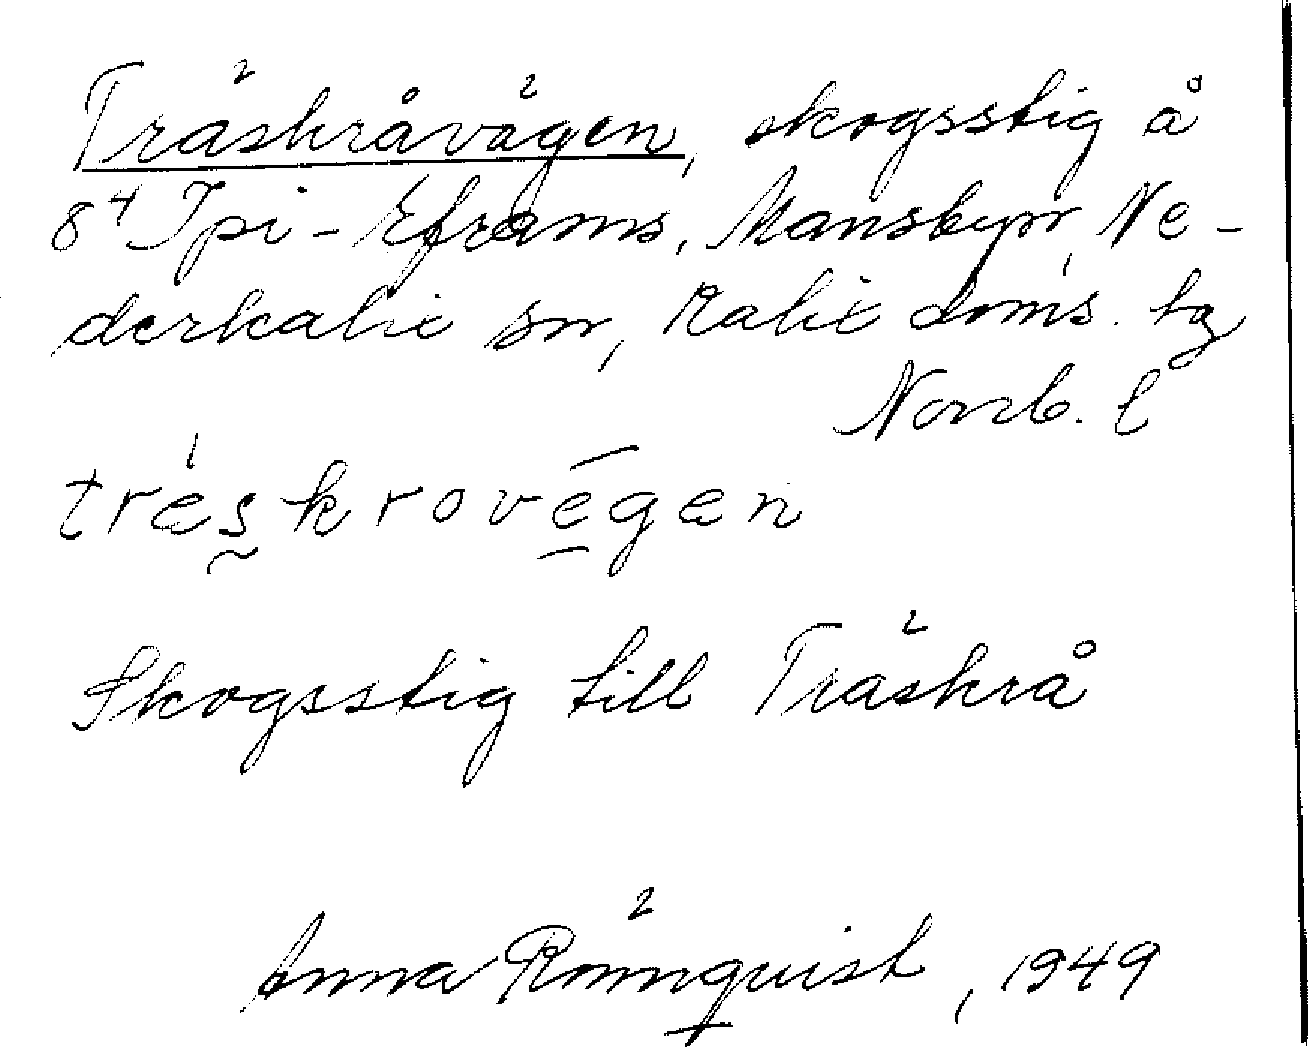 Träskråvägen, skogsstig å
8⁴ Ipi-Eframs, Mansbyn, Ne-
derkalix sn, Kalix doms. tg
Norrb. l
tréskrovégen
Skogsstig till Träskrå
Anna Rönnquist, 1949